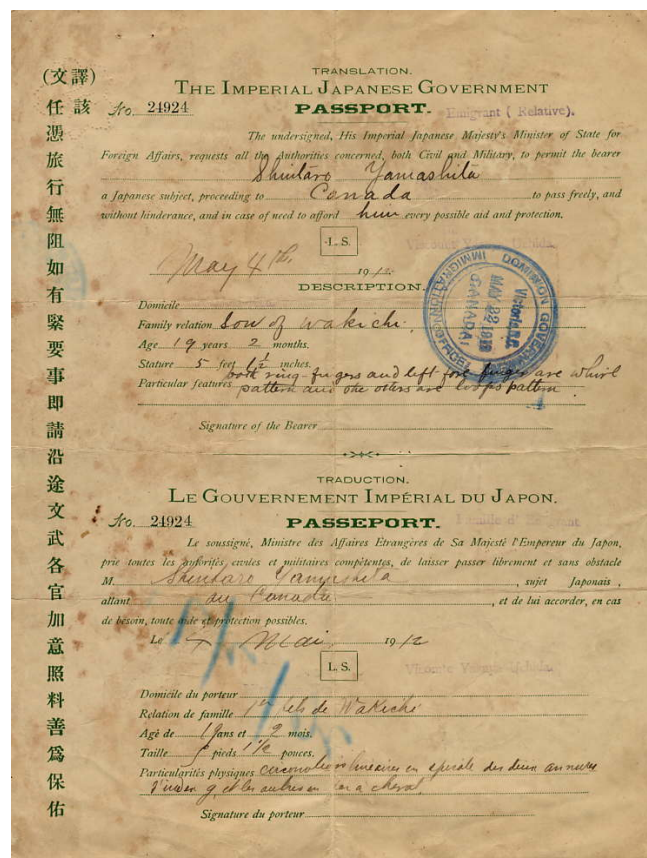 (譯文)
該
任憑旅行無阻如有緊要事即請沿途文武各官加意照料善為保佑
TRANSLATION.
THE IMPERIAL JAPANESE GOVERNMENT
No. 24924 PASSPORT. Emigrant ( Relative).
The undersigned, His Imperial Japanese Majesty's Minister of State for
Foreign Affairs, requests all the Authorities concerned, both Civil and Military, to permit the bearer
Shintaro Yamashita
a Japanese subject, proceeding to Canada to pass freely, and
without hinderance, and in case of need to afford him every possible aid and protection.
L. S.
Viscount Uchida.
May 4th 1912
DESCRIPTION.
DOMINION GOVERNMENT
IMMIGRATION OFFICE
Victoria B.C.
MAY 22 1912
CANADA
Domicile
Family relation Son of Wakichi.
Age 19 years 2 months.
Stature 5 feet 1½ inches.
Particular features both ring-fingers and left fore finger are whirl
pattern and the others are loops pattern
Signature of the Bearer
TRADUCTION.
LE GOUVERNEMENT IMPÉRIAL DU JAPON.
No. 24924 PASSEPORT.
Le soussigné, Ministre des Affaires Etrangères de Sa Majesté l'Empereur du Japon,
prie toutes les autorités civiles et militaires compétentes, de laisser passer librement et sans obstacle
M. Shintaro Yamashita, sujet Japonais,
allant au Canada, et de lui accorder, en cas
de besoin, toute aide et protection possibles.
Le 4 Mai 1912
L. S.
Vicomte Uchida.
Domicile du porteur
Relation de famille 1er fils de Wakichi
Agé de 19 ans et 2 mois.
Taille 5 pieds 1½ pouces.
Particularités physiques linéaires en spirale des deux annulaires
l'index g. et les autres en fer à cheval
Signature du porteur